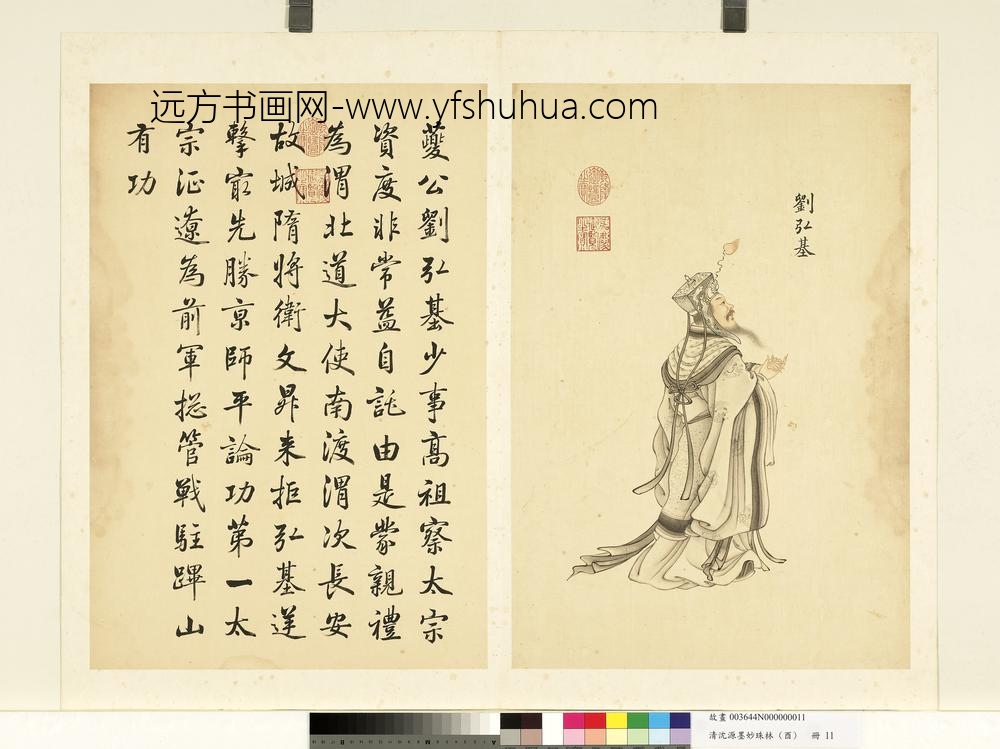 远方书画网-www.yfshuhua.com
劉弘基
夔公劉弘基少事高祖察太宗
資度非常益自託由是蒙親禮
為渭北道大使南渡渭次長安
故城隋將衛文昇来拒弘基逆
擊㝡先勝京師平論功第一太
宗征遼為前軍捴管戰駐蹕山
有功
故畫 003644N000000011
清沈源墨妙珠林（酉） 冊 11